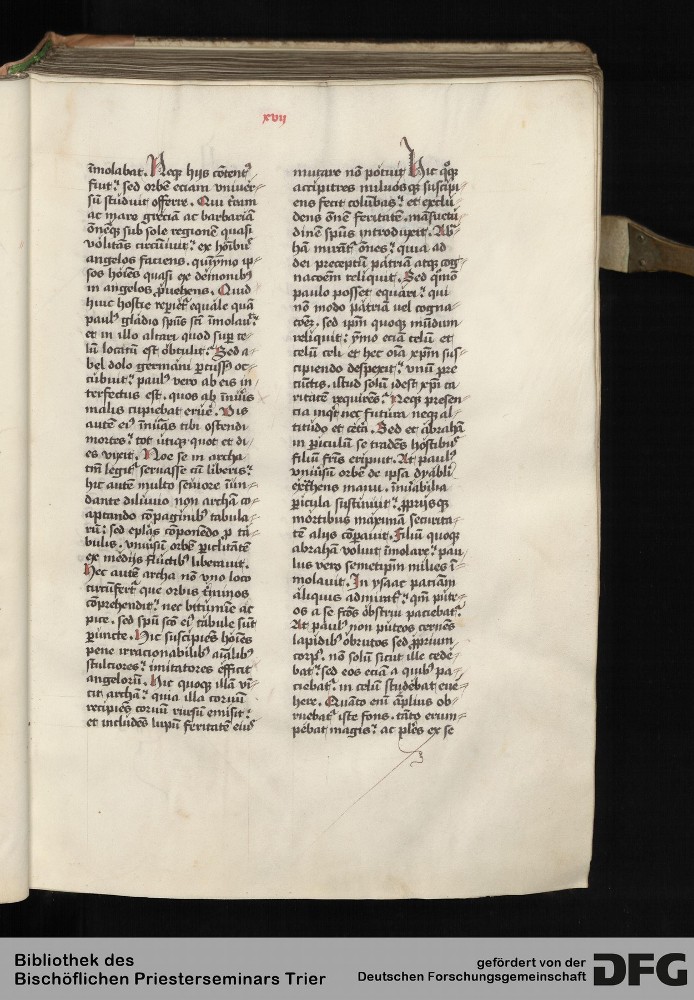 xvij
īmolabat. Neqꝫ hijs cōtentꝰ
fuit: sed orbē eciam vniuer-
sū studuit offerre. Qui t̄ram
ac mare greciā ac barbariā
om̄eqꝫ sub sole regionē quasi
volitās circūiuit: ex hoībꝰ
angelos faciens. quīymo ip-
sos hoīes quasi ex demonibꝰ
in angelos ꝓuehens. Quid
huic hostie reperit̄ equale quā
paulꝰ gladio spūs sc̄i īmolauit:
et in illo altari quod suꝑ ce-
lū locatū est obtulit: Sed a-
bel dolo germani ꝑcussꝰ oc-
cubuit: paulꝰ vero ab eis in-
terfectus est. quos ab īnūis
malis cupiebat eruē. Vis
autē eiꝰ īnūas tibi ostendi
mortes: tot vtiqꝫ quot et di-
es vixit. Noe se in archa
tm̄ legit̄ seruasse cū liberis:
hic autē multo seuiore īun-
dante diluuio non archā co-
aptando cōpaginibꝰ tabula-
rū: sed ep̄las cōponēdo ꝓ ta-
bulis. vniūsū orbē ꝑiclitātē
ex medijs fluctibꝰ liberauit.
Hec autē archa nō vno loco
circūfert̄ que orbis t̄minos
cōprehendit: nec bitumīe ac
pice. sed spū sc̄o eiꝰ tabule sūt
ꝑuncte. Hic suscipiēs hoīes
pene irracionabilibꝰ aīalibꝰ
stulciores: imitatores efficit
angelorū. Hic quoqꝫ illā vi-
cit archā: quia illa coruū
recipiēs coruū rursū emisit:
et includēs lupū feritatē eiꝰ
mutare nō potuit Hic qͦqꝫ
accipitres miluosqꝫ suscipi-
ens fecit colūbas: et exclu-
dens om̄ē feritatē. māsuetu-
dinē spūs introduxit. Ab̄-
hā mirant̄ om̄es: quia ad
dei preceptū patriā atqꝫ cog-
nacōem reliquit. Sed qͦmō
paulo posset equari: qui
nō modo patriā uel cogna-
cōeꝫ. sed ipm̄ quoqꝫ mūdum
reliquit: ymo eciā celū et
celū celi et hec oīa xpm̄ sus-
cipiendo despexit: vnū pre
cūctis. istud solū idest xp̄i ca-
ritatē requirēs: Neqꝫ presen-
cia inqͥt nec futura neqꝫ al-
titudo et ceta. Sed et abrahā
in ꝑiculū se tradēs hostibꝰ
filiū fr̄is eripuit. At paulꝰ
vniūsū orbē de ipsa dyabli
ext̄hens manu. īnūabilia
ꝑicula sustinuit: ꝓprijsqꝫ
mortibus maximā securita-
tē alijs cōꝑauit. Filiū quoqꝫ
abrahā voluit īmolare: pau-
lus vero semetipm̄ milies ī-
molauit. In ysaac paciam
aliquis admirat̄: qm̄ pute-
os a se fc̄os obstrui paciebat̄:
At paulꝰ non puteos cernēs
lapidibꝰ obrutos sed ꝓprium
corpꝰ. nō solū sicut ille cedē-
bat: sed eos eciā a quibꝰ pa-
ciebat̄. in celū studebat eue-
here. Quāto enī āplius ob-
ruebat̄ iste fons. tāto erum-
pebat magis: ac plēs ex se
Bibliothek des
Bischöflichen Priesterseminars Trier
gefördert von der
Deutschen Forschungsgemeinschaft
DFG